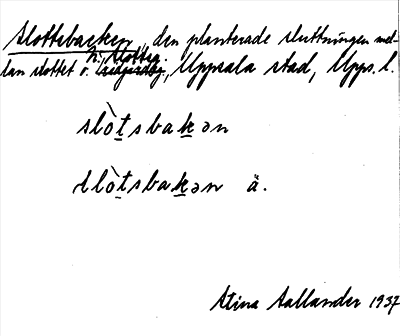 Slottsbacken, den planterade sluttningen mel-
n. Slottsg.
lan slottet o. , Uppsala stad, Upps. l.
slòtsbakən
slòtsbakən ä.
Stina Sallander 1937